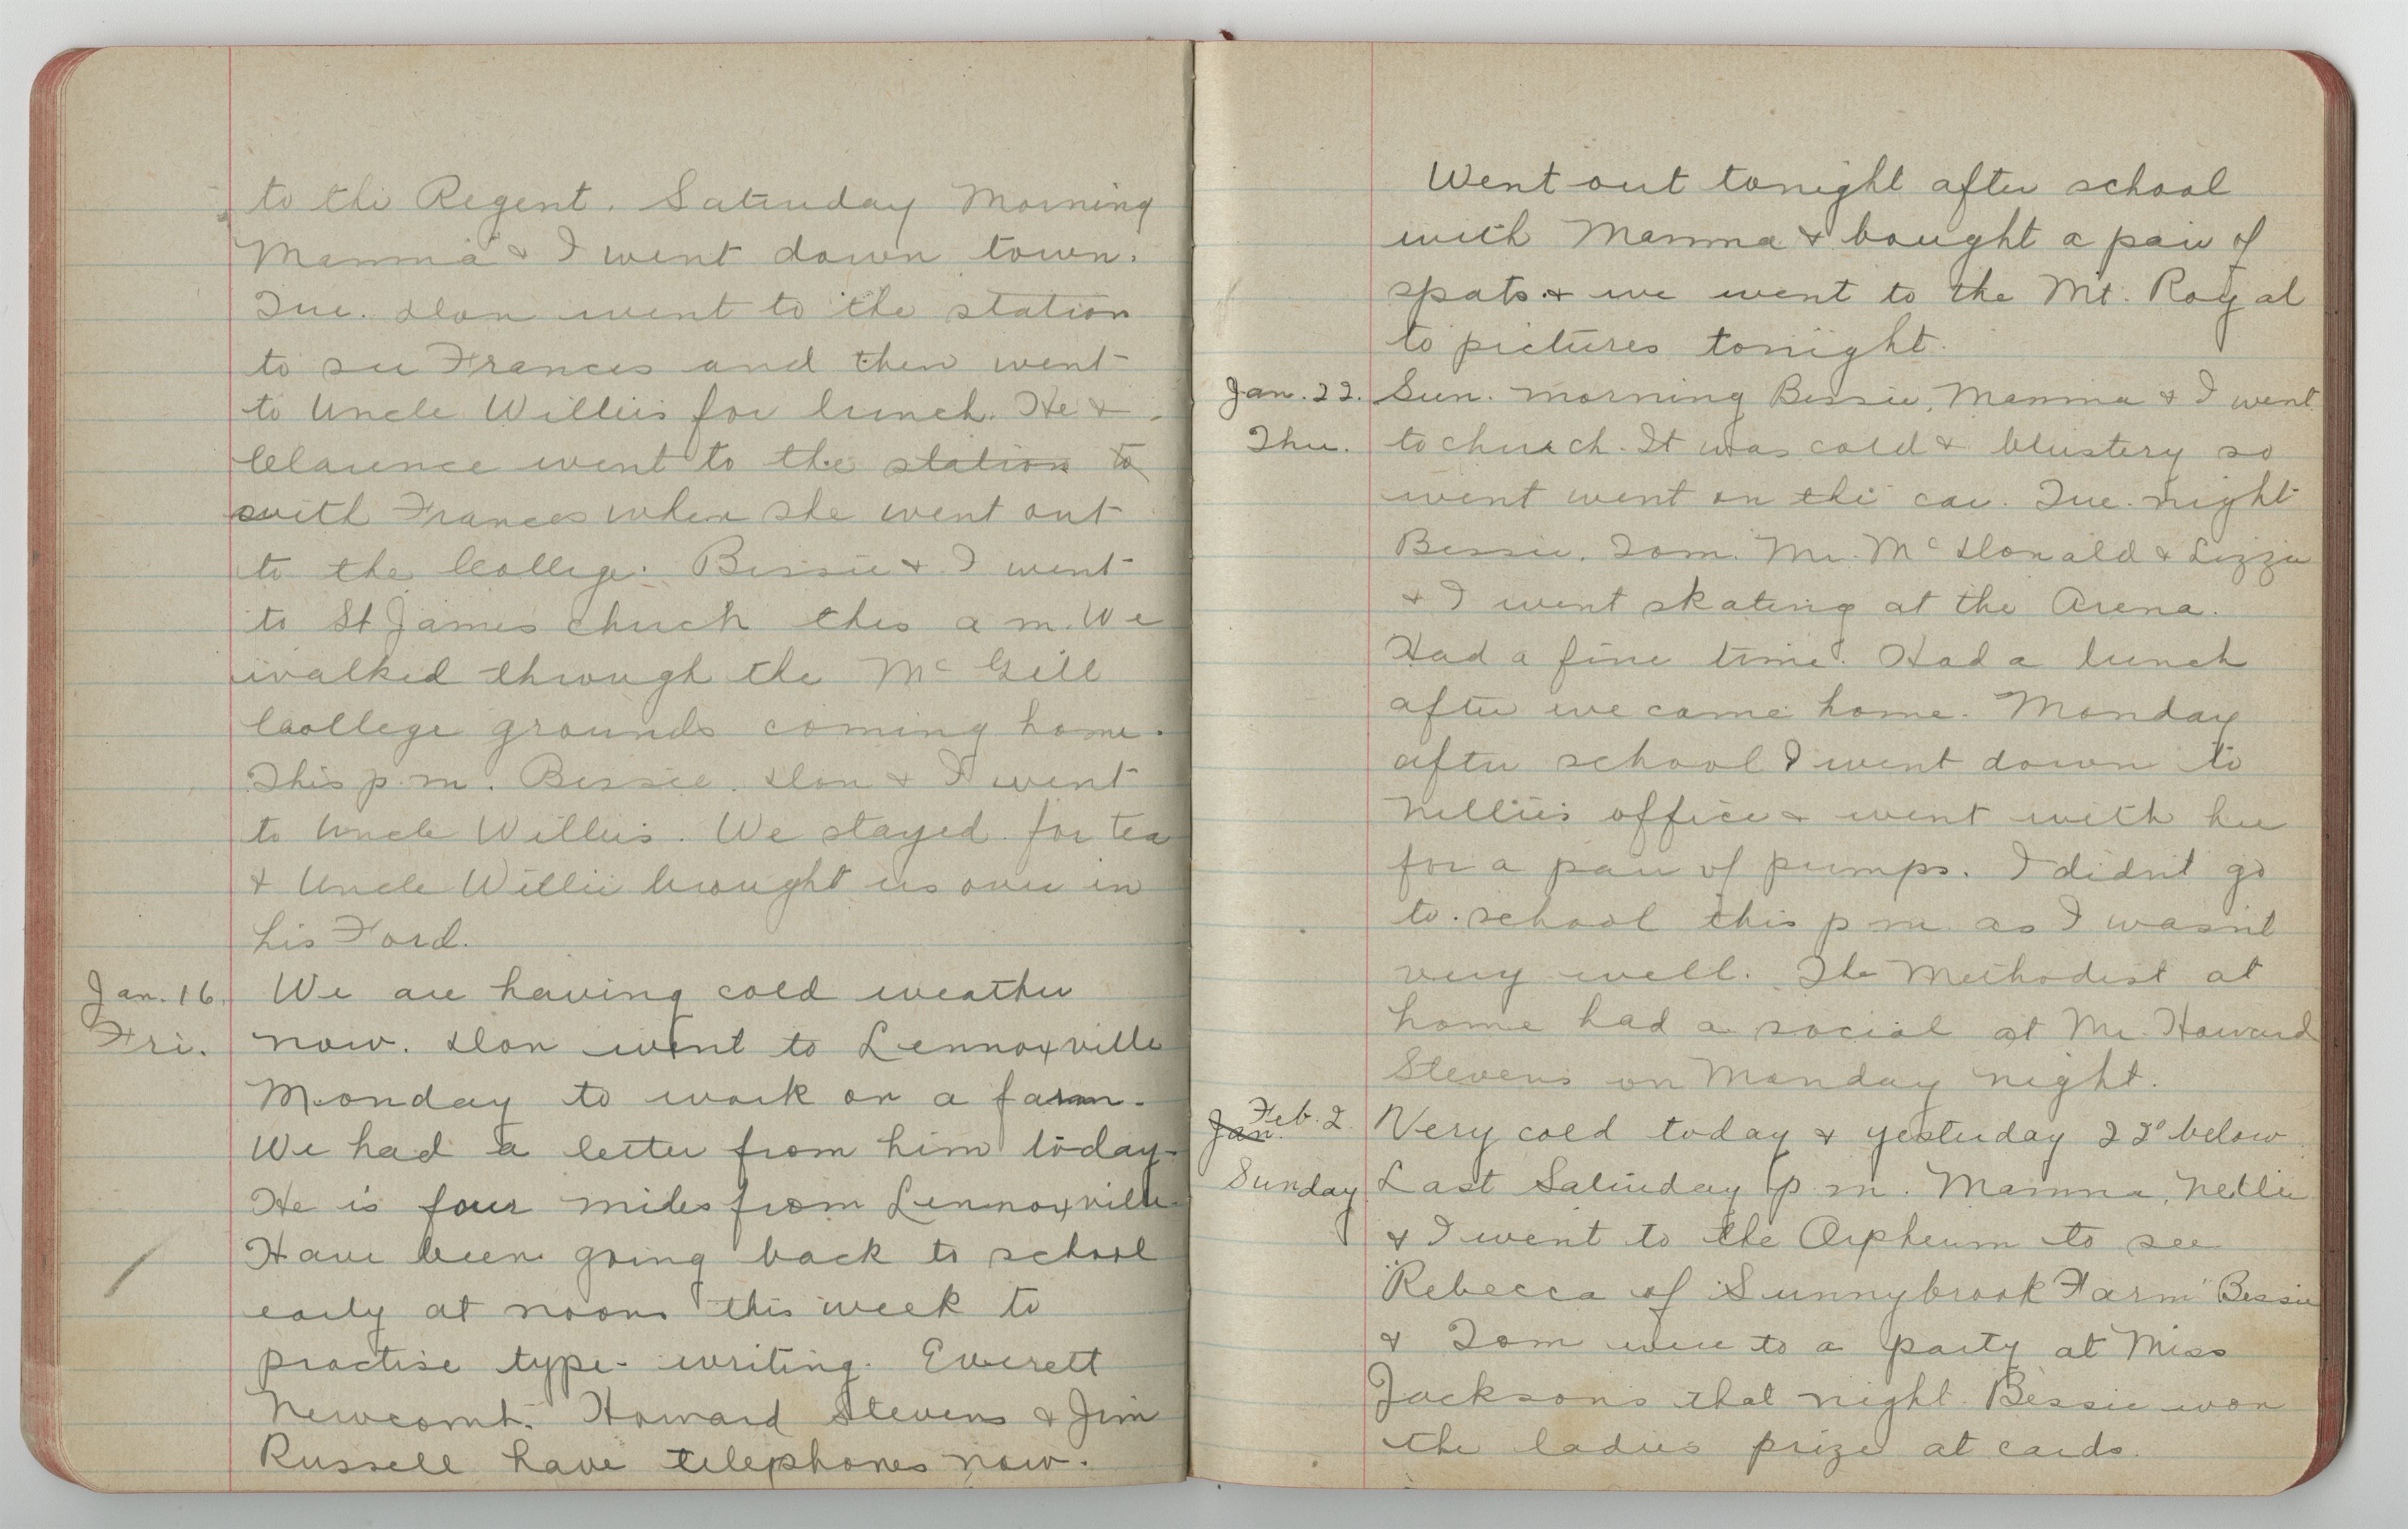 to the Regent. Saturday Morning
Mamma & I went down town.
Tue. Don went to the station
to see Frances and then went
to Uncle Willie's for lunch. He &
Clarence went to the station to
with Frances when she went out
to the College. Bessie & I went
to St James church this a m. We
walked through the McGill
Caollege grounds coming home.
This p.m. Bessie. Don & I went
to Uncle Willies. We stayed for tea
& Uncle Willie brought us over in
his Ford.
Jan. 16. We are having cold weather
Fri. now. Don went to Lennoxville
Monday to work on a farm.
We had a letter from him today.
He is four miles from Lennoxville.
Have been going back to school
early at noons this week to
practise type-writing. Everett
Newcomb. Howard Stevens & Jim
Russell have telephones now.
Went out tonight after school
with Mamma & bought a pair of
spats & we went to the Mt. Royal
to pictures tonight.
Jan. 22. Sun. morning Bessie, Mamma & I went
Thu. to church. It was cold & blustery so
went went on the car. Tue. night
Bessie. Tom. Mr. McDonald & Lizzie
& I went skating at the Arena.
Had a fine time. Had a lunch
after we came home. Monday
after school I went down to
Nellie's office & went with her
for a pair of pumps. I didn't go
to school this p m as I wasn't
very well. The Methodist at
home had a social at Mr. Howard
Stevens on Monday night.
Jan. Feb. 2. Very cold today & yesterday 22° below
Sunday Last Saturday p. m. Mamma, Nellie
& I went to the Orpheum to see
"Rebecca of Sunnybrook Farm" Bessie
& Tom were to a party at Miss
Jacksons that night. Bessie won
the ladies prize at cards.